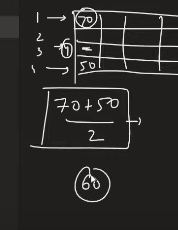 1 → 70
2
3 → –
→ 50
70+50
2
60